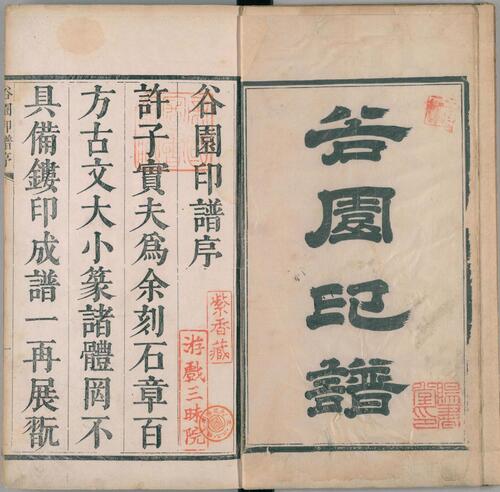 谷園印譜
谷園印譜序
許子實夫為余刻石章百
方古文大小篆諸體罔不
具備鏤印成譜一再展翫
紫香藏
游戲三昧院
谷園印譜序